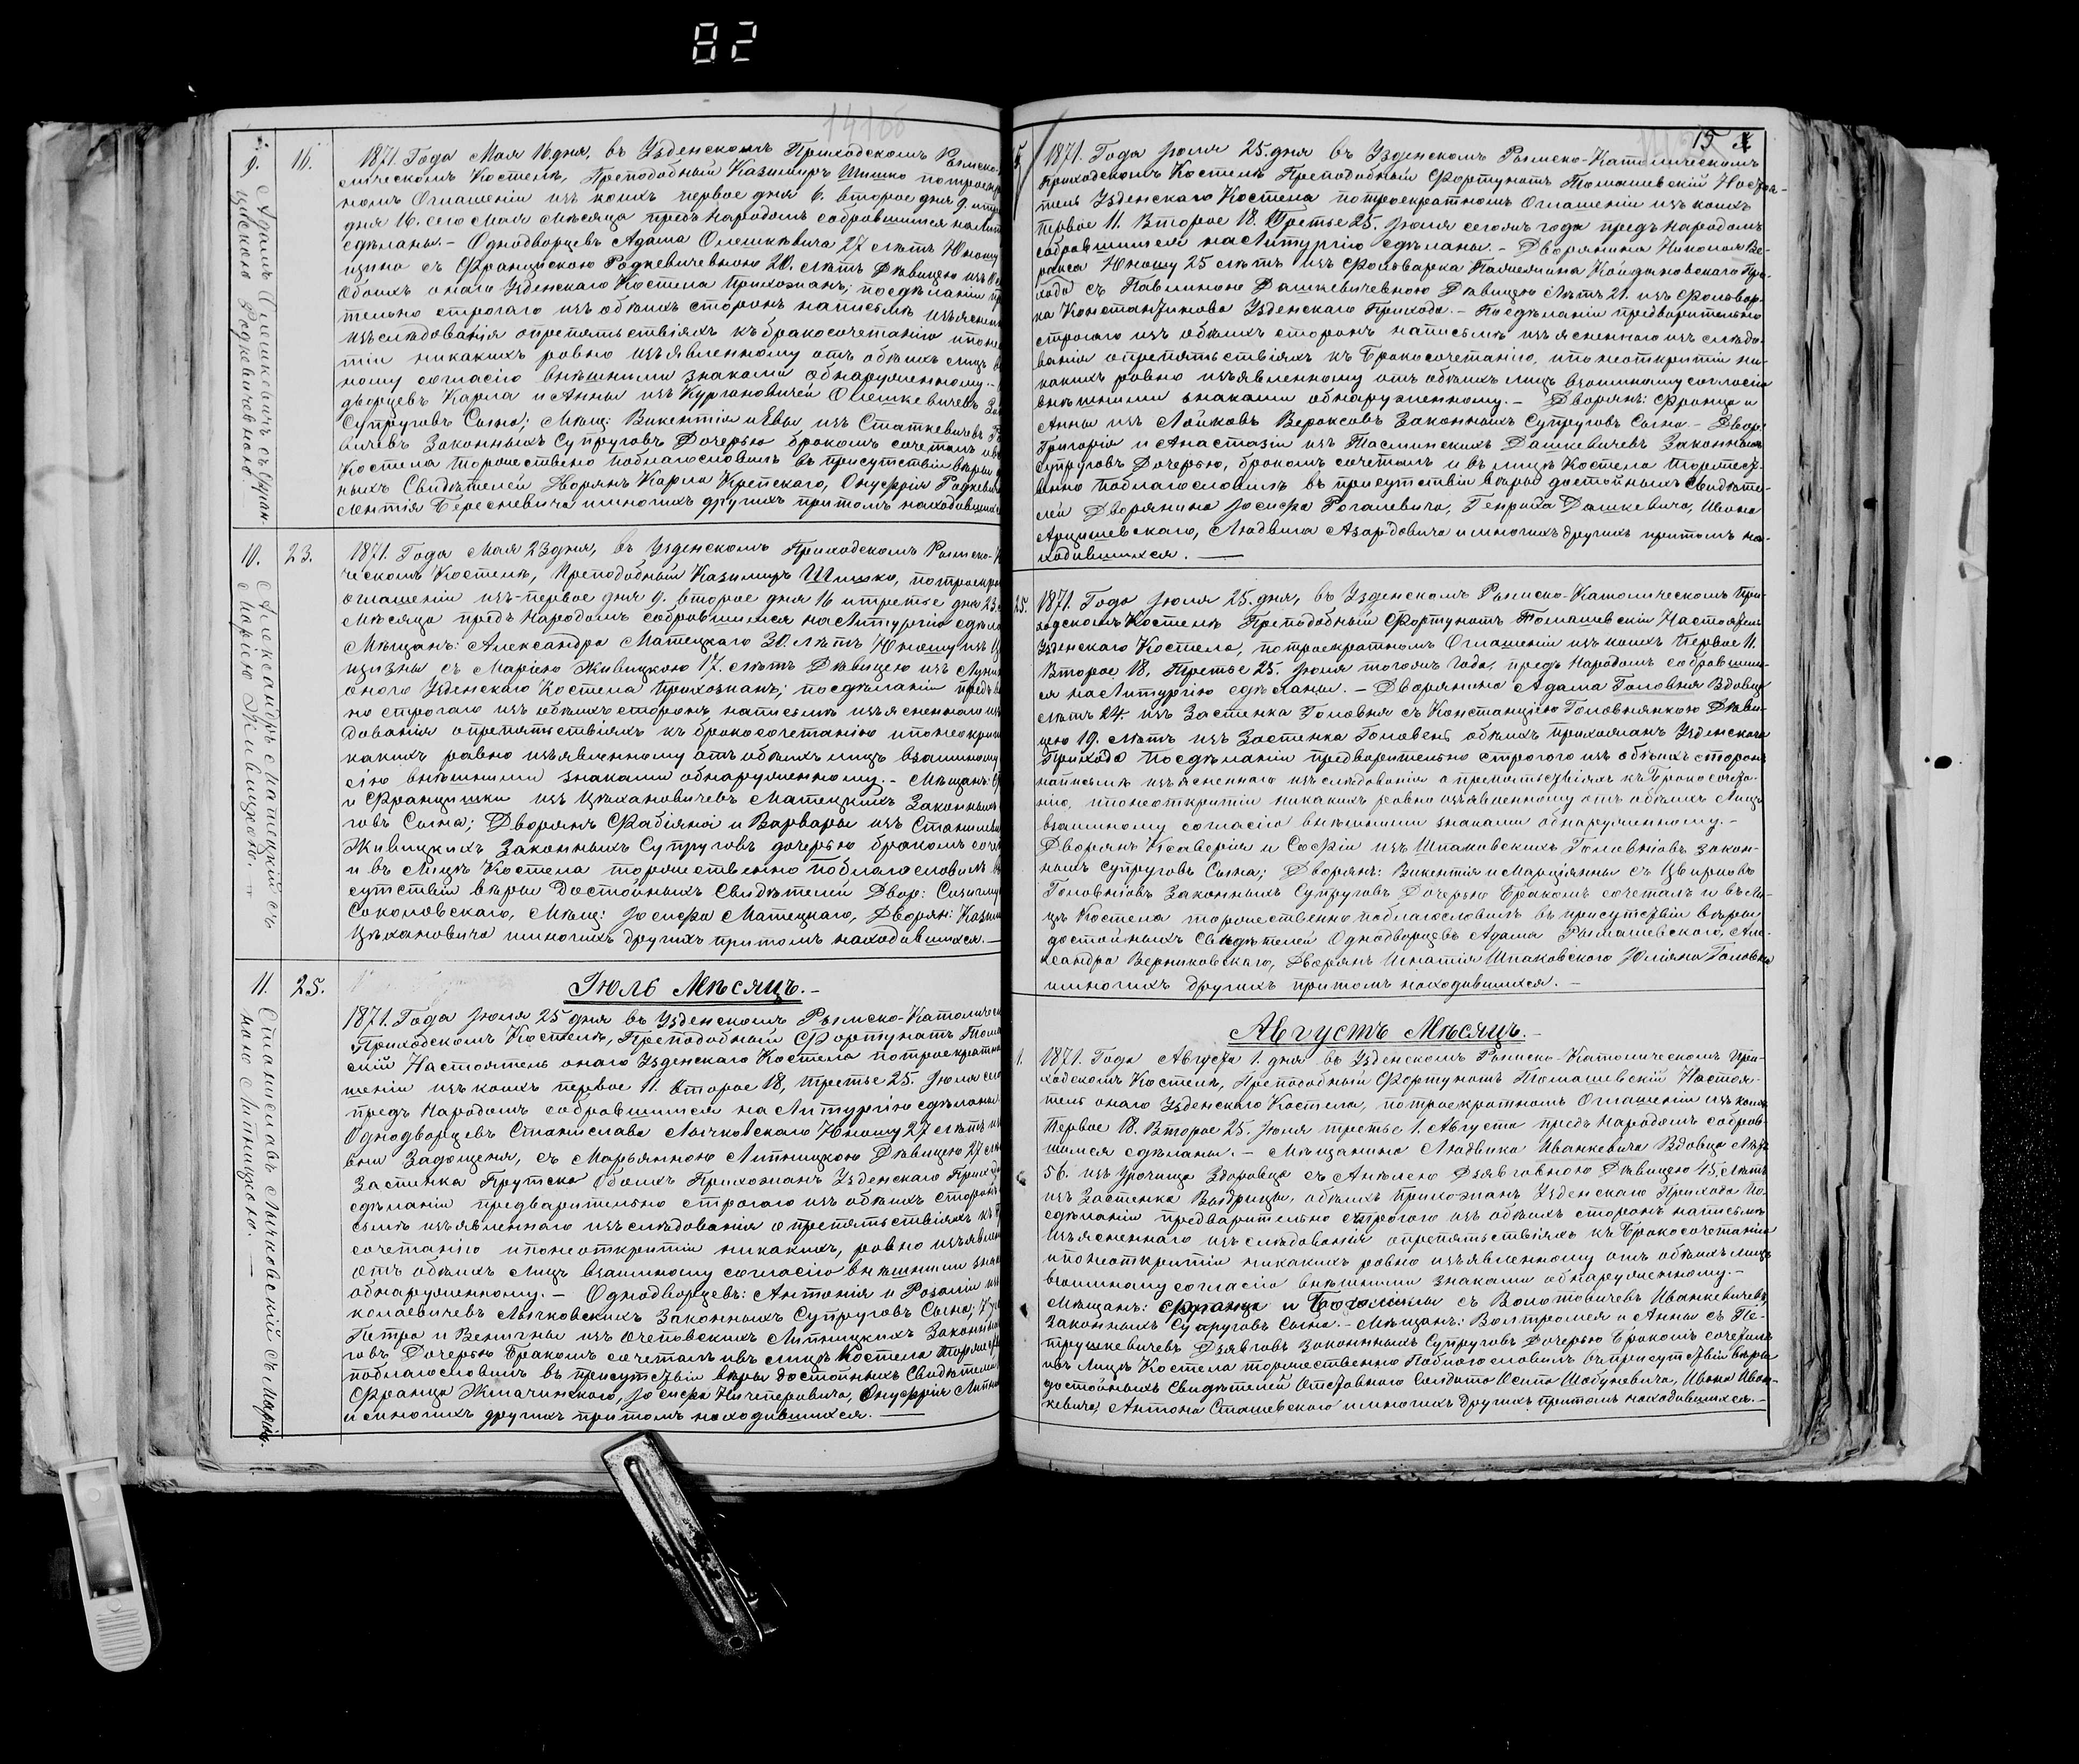 82
14
9.
16.
Адамъ Олешкевичъ съ Фран-
цискою Родкевичовною.
1871. Года Мая 16 дня, въ Узденскомъ Приходскомъ Римско-
лическомъ Костелѣ, Преподобный Казимиръ Шишко по троекр
номъ Оглашеніи изъ коихъ первое дня 6. второе дня 9. и тр
дня 16. сего Мая Мѣсяца предъ Народомъ собравшимся на Лит
сдѣланы. – Однодворцевъ Адама Олешкѣвича 27 лѣтъ Юношу
щина съ Францискою Родкевичевною 20. лѣтъ Дѣвицею изъ
Обоихъ онаго Узденскаго Костела Прихожанъ; по сдѣланіи пр
тельно строгаго изъ обѣихъ сторонъ написьмѣ изъясненн
изслѣдованія о препятьствіяхъ къ бракосочетанію и по не
тіи никакихъ ровно изъявленному отъ обѣихъ лицъ в
ному согласію внѣшними знаками обнаруженному. –
дворцевъ Карла и Анны изъ Кургановичей Олешкевичевъ За
Супруговъ Сына; Мѣщ: Викентія и Евы изъ Статкевичевъ Ро
вичевъ Законныхъ Супруговъ Дочерью бракомъ сочеталъ и въ
Костела торжественно поблагословилъ въ присутствіи вѣры д
ныхъ Свидѣтелей Дворянъ Карла Крепскаго, Онуфрія Родкеви
лентія Бересневича и многихъ другихъ притомъ находившихся
10.
23.
Александръ Матецкій съ
Маріею Живицкою. –
1871. Года Мая 23 дня, въ Узденскомъ Приходскомъ Римско-К
ческомъ Костелѣ, Преподобный Казимиръ Шишко, по троекра
оглашеніи изъ-первое дня 9. второе дня 16 и третье дня 23.
Мѣсяца предъ Народомъ собравшимся на Литургію сдѣла
Мѣщанъ: Александра Матецкаго 30. лѣтъ Юношу изъ
щизны съ Маріею Живицкою 17. лѣтъ Дѣвицею изъ
онаго Узденскаго Костела Прихожанъ; по сдѣланіи предв
но строгаго изъ обѣихъ сторонъ написьмѣ изъясненнаго из
дованія о препятьствіяхъ къ бракосочетанію и по неокры
какихъ ровно изъявленному отъ обѣихъ лицъ взаимному
сію внѣшними знаками обнаруженному. – Мѣщанъ:
и Францишки изъ Цѣхановичевъ Матецкихъ Законныхъ
говъ Сына; Дворянъ Фабіяна и Варвары изъ Станишев
Живицкихъ Законныхъ Супруговъ дочерью бракомъ соче
и въ Лицѣ Костела торжественно поблагословилъ въ
сутствіи вѣры Достойныхъ Свидѣтелей Двор:
Соколовскаго, Мѣщ: Іосифа Матецкаго, Дворян: Казим
Цѣхановича и многихъ другихъ притомъ находившихся. –
11.
25.
Станиславъ Лычковскій съ Маріян-
ною Липницкою. –
Іюль Мѣсяцъ. –
1871. Года Іюля 25 дня въ Узденскомъ Римско-Католическ
Приходскомъ Костелѣ, Преподобный Фортунатъ Тома
скій Настоятель онаго Узденскаго Костела по троекратн
шеніи изъ коихъ первое 11. второе 18, третье 25. Іюля сего
предъ Народомъ собравшимся на Литургію сдѣланы.
Однодворцевъ Станислава Лычковскаго Юношу 27 лѣтъ из
вни Задощеня, съ Марьянною Липницкою Дѣвицею 27 лѣ
Застѣнка Прутско Обоихъ Прихожанъ Узденскаго Прихода
сдѣланіи предварительно строгаго изъ обѣихъ сторонъ
сьмѣ изъявленнаго изслѣдованія о препятьствіяхъ къ
сочетанію и по неоткрытіи никакихъ, ровно изъявлен
отъ обѣихъ лицъ взаимному согласію внѣшними зна
обнаруженному. – Однодворцевъ: Антонія и Розаліи из
колаевичевъ Лычковскихъ Законныхъ Супруговъ Сына;
Петра и Венигны изъ Очеповскихъ Липницкихъ Законных
говъ Дочерью Бракомъ сочеталъ и въ лицѣ Костела Торжест
поблагословилъ въ присутствіи вѣры достойныхъ Свидѣтелей
Франца Жмачинскаго, Іосифа Ничипоровича, Онуфрія Липни
и многихъ другихъ притомъ находившихся. –
15
1871. Года Іюля 25. дня въ Узденскомъ Римско-Католическомъ
Приходскомъ Костелѣ Преподобный Фортунатъ Томашевскій Настоя-
тель Узденскаго Костела по троекратномъ Оглашеніи изъ коихъ
первое 11. Второе 18. Третье 25. Іюля сего года предъ Народомъ
собравшимся на Литургію сдѣланы. – Дворянина Николая Ве-
ракса Юношу 25 лѣтъ изъ Фольварка Койдановскаго При-
хода съ Павлиною Дашкевичевною Дѣвицею лѣтъ 21. изъ Фольвар-
ка Константинова Узденскаго Прихода. – По сдѣланіи предварительно
строгаго изъ обѣихъ сторонъ написьмѣ изъясненнаго изслѣдо-
ванія о препятьствіяхъ къ Бракосочетанію, и по неоткрытіи ни-
какихъ ровно изъявленному отъ обѣихъ лицъ взаимному согласію
внѣшними знаками обнаруженному. – Дворянъ: Франца и
Анны изъ Лойковъ Вераксовъ Законныхъ Супруговъ Сына. – Двор:
Григорія и Анастазіи изъ Тасминскихъ Дашкевичевъ Законныхъ
Супруговъ Дочерью, бракомъ сочеталъ и въ лицѣ Костела Торжест-
венно поблагословилъ въ присутствіи вѣры достойныхъ Свидѣте-
лей Дворянина Іосифа Рогалевича, Генриха Дашкевича, Ивана
Арцишевскаго, Людвига Азардовича и многихъ другихъ притомъ на-
ходившихся. –
25.
1871. Года Іюля 25. дня, въ Узденскомъ Римско-Католическомъ При-
ходскомъ Костелѣ Преподобный Фортунатъ Томашевскій Настоятель
Узденскаго Костела, по троекратномъ Оглашеніи изъ коихъ Первое 11.
Второе 18. Третье 25. Іюля того года, предъ Народомъ собравшим-
ся на Литургію сдѣланы. – Дворянина Адама Головня Вдовца
лѣтъ 24. изъ Застенка Головня съ Констанціею Головнянкою Дѣви-
цею 19. лѣтъ изъ Застенка Головень обѣихъ прихожанъ Узденскаго
Прихода По сдѣланіи предварительно строгаго изъ обѣихъ сторонъ
написьмѣ изъясненнаго изслѣдованія о препятьствіяхъ къ Бракосочета-
нію, и по неоткрытіи никакихъ ровно изъявленному отъ обѣихъ Лицъ
взаимному согласію внѣшними знаками обнаруженному. –
Дворянъ Ксаверія и Софіи изъ Шпаковскихъ Головнювъ закон-
ныхъ Супруговъ Сына; Дворянъ: Викентія и Марціянны съ
Головнювъ Законныхъ Супруговъ Дочерью Бракомъ сочеталъ и въ Ли-
цѣ Костела торжественно поблагословилъ въ присутствіи вѣры
достойныхъ Свидѣтелей Однодворцевъ Адама Рымашевскаго, Але-
ксандра Верниковскаго, Дворянъ Игнатія Шпаковскаго Юліяна Головня
и многихъ другихъ притомъ находившихся. –
Августъ Мѣсяцъ. –
1.
1871. Года Августа 1. дня въ Узденскомъ Римско-Католическомъ При-
ходскомъ Костелѣ, Преподобный Фортунатъ Томашевскій Настоя-
тель онаго Узденскаго Костела, по троекратномъ Оглашеніи изъ коихъ
Первое 18. Второе 25. Іюля третье 1. Августа предъ Народомъ собрав-
шимся сдѣланы. – Мѣщанина Людвика Иванкевича Вдовца Лѣтъ
56. изъ Урочища Здоровца съ Анѣлею Дзявговною Дѣвицею 45. Лѣтъ
изъ Застенка Выдрицы, обѣихъ прихожанъ Узденскаго Прихода По-
сдѣланіи предварительно строгаго изъ обѣихъ сторонъ написьмѣ
Изъясненнаго изслѣдованія о препятьствіяхъ къ Бракосочетанію
и по неоткрытіи никакихъ ровно изъявленному отъ обѣихъ лицъ
взаимному согласію внѣшними знаками обнаруженному. –
Мѣщанъ: Франца и съ Волотовичевъ Иванкевичевъ
Законныхъ Супруговъ Сына. – Мѣщанъ: Волтромея и Анны съ Пе-
трушкевичевъ Дзявговъ Законныхъ Супруговъ Дочерью Бракомъ сочеталъ
и въ Лицѣ Костела торжественно Поблагословилъ въ присутствіи вѣры
достойныхъ Свидѣтелей Отставнаго Солдата Осипа Шабуневича, Ивана Иван-
кевича, Антона Сташевскаго и многихъ другихъ притомъ находившихся. –